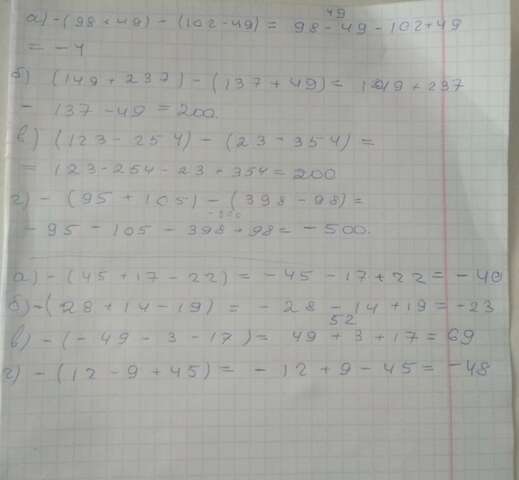 49
а) -(98+49) - (102-49) = 98-49-102+49
= -4
б) (149 + 237) - (137 + 49) = 149 + 237
- 137 - 49 = 200.
в) (123 - 254) - (23 - 354) =
= 123 - 254 - 23 + 354 = 200
г) - (95 + 105) - (398 - 98) =
- 95 - 105 - 398 + 98 = - 500.
а) - (45 + 17 - 22) = - 45 - 17 + 22 = - 40
б) - (28 + 14 - 19) = - 28 - 14 + 19 = - 23
52
в) - (- 49 - 3 - 17) = 49 + 3 + 17 = 69
г) - (12 - 9 + 45) = - 12 + 9 - 45 = - 48